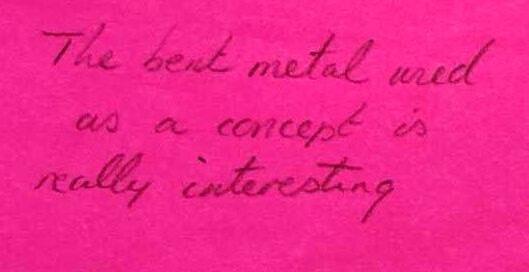 The bent metal used
as a concept is
really interesting